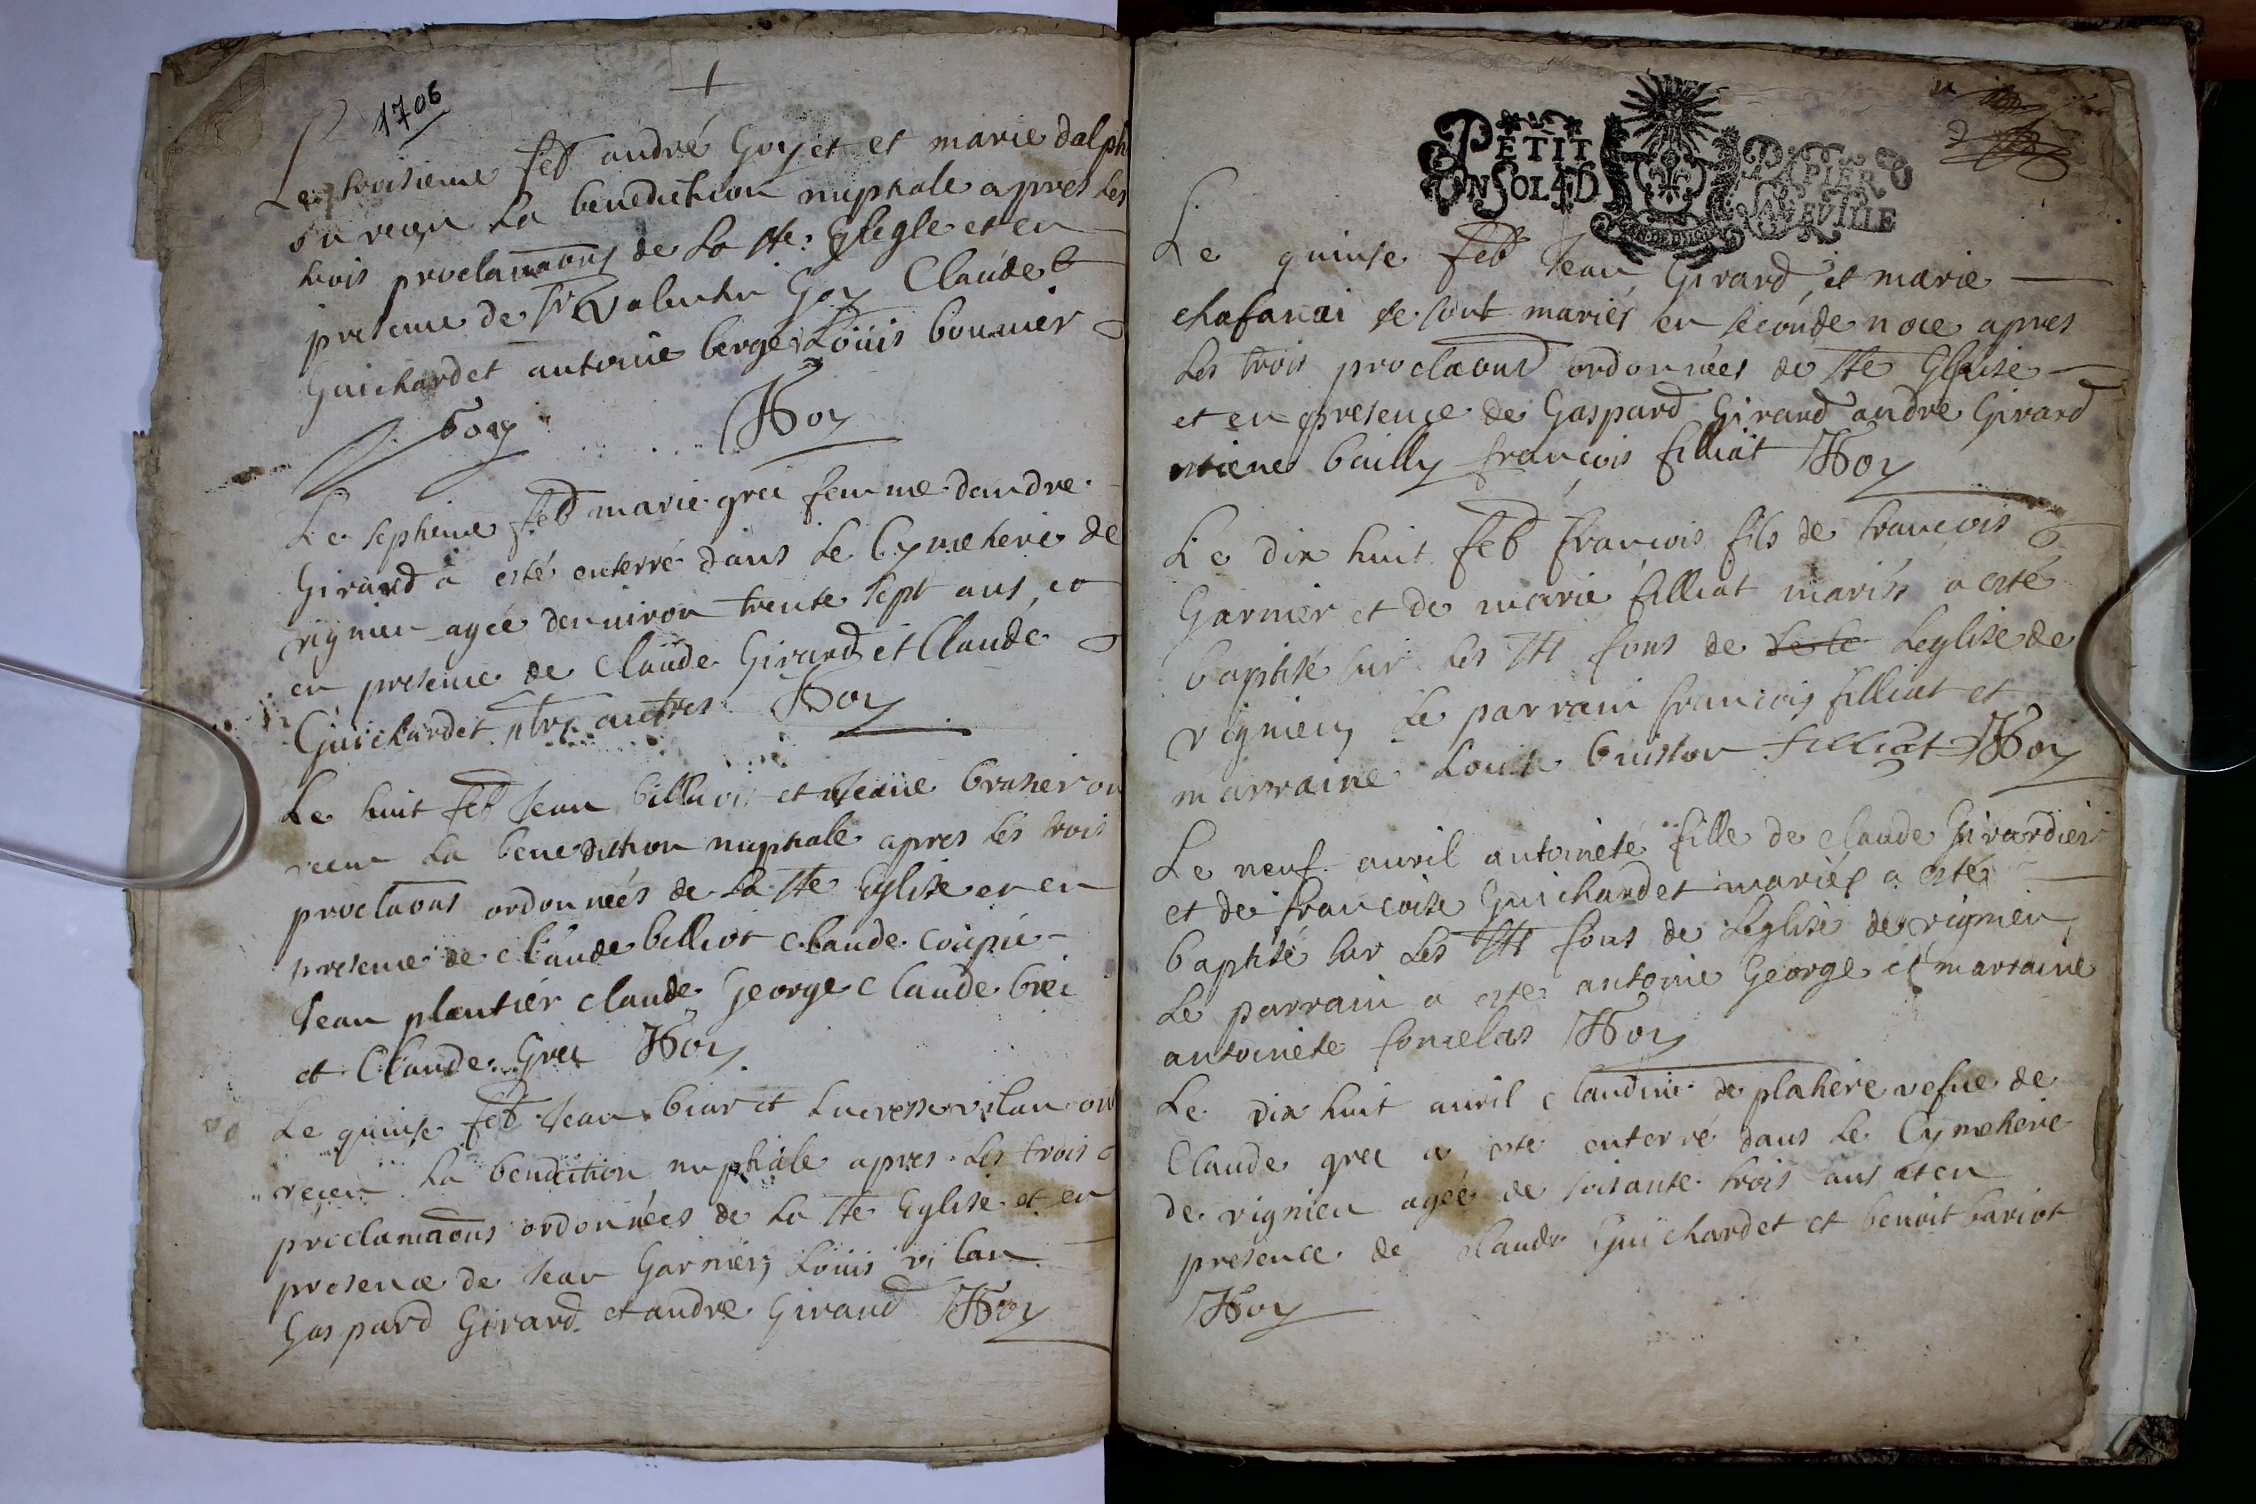 1706
Le troisieme feb andré Goyet et marie dalph
on receu La benediction nuptiale apres les
trois proclamaons de La Ste Eglegle et en
presence de Sr Valentin Goy Claude
Guichardet antoine berger Loüis bonnier
Goy Goy
Le septieme feb marie grec femme dandre
Girard a esté enterré dans Le Cymetiere de
vignieu agée denviron trente sept ans, et
en presence de Claude Girard et Claude
Guichardet ptre autres Goy
Le huit feb Jean billiot et Jeane brasier on
receu La benediction nuptiale apres les trois
proclaons ordonnées de La Ste Eglise et en
presence de claude billiot claude coupié
Jean plantier claude George claude
et Claude Grec Goy
Le quinse feb Jean biar et Lucresse vilan on
receu La bendition nuptiale apres Les trois
proclamaons ordonnées de La Ste Eglise et en
presence de Jean Garnier, Loüis vilan
Gaspard Girard et andre Giraud Goy
PETIT PAPIER
Le quinse feb Jean Girard et marie
chafanai se sont mariés en seconde noce apres
Les trois proclaons ordonnées de Ste Eglise
et en presence de Gaspard Girard andre Girard
bailly françois filliat Goy
Le dix huit feb françois fils de francois
Garnier et de marie filliat mariés a esté
baptisé sur Les Sts fons de Leglise de
vignieu Le parrain francois filliat et
marraine Louise buisson filliat Goy
Le neuf auril antoinete fille de claude Girardier
et de francoise Guichardet mariés a esté
baptisé sur Les Sts fons de Leglise de vignieu
Le parrain a este antoine George et marraine
antoinete Goy
Le dix huit auril claudine de platiere vefue de
Claude grec a este enterré dans Le Cymetiere
de vignieu agée de soisante trois ans et en
presence de claude Guichardet et benoit bariot
Goy